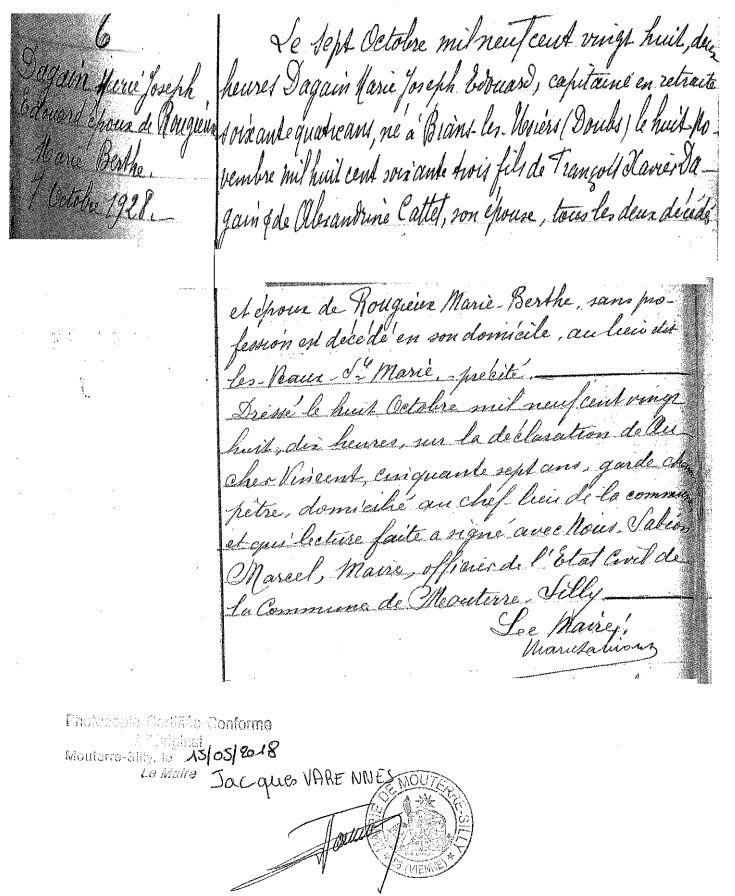 6
Dagain Marie Joseph
Edouard époux de Rougieux
Marie Berthe.
7 Octobre 1928.
Le sept Octobre mil neuf cent vingt huit, deux
heures Dagain Marie Joseph Edouard, capitaine en retraite
soixante quatre ans, né à Bians-les-Usiers (Doubs) le huit No-
vembre mil huit cent soixante trois fils de François Xavier Da-
gain & de Alexandrine Cattet, son épouse, tous les deux décédés
et époux de Rougieux Marie-Berthe, sans pro-
fession est décédé en son domicile, au lieu dit
les-Vaux-Ste Marie, précité.
Dressé le huit Octobre mil neuf cent vingt
huit, dix heures, sur la déclaration de Au-
cher Vincent, cinquante sept ans, garde cham
pêtre, domicilié au chef-lieu de la commune
et qui lecture faite a signé avec Nous, Sabiou
Marcel, Maire, officier de l'Etat Civil de
la Commune de Mouterre-Silly
Le Maire,
Photocopie Certifiée Conforme
à l'Original
Mouterre-Silly, le 15/05/2018
Le Maire Jacques VARENNES
MAIRIE DE MOUTERRE-SILLY
(VIENNE)